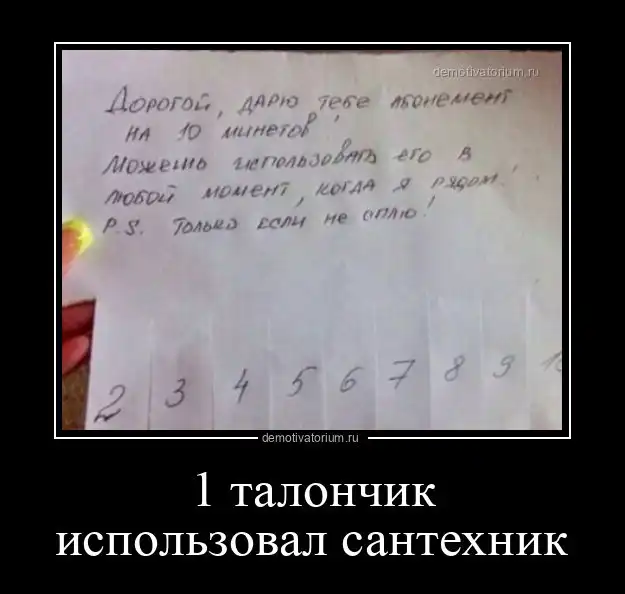 demotivatorium.ru
Дорогой, дарю тебе абонемент
на 10 минетов!
Можешь использовать его в
любой момент, когда я рядом!
P.S. Только если не сплю!
2 3 4 5 6 7 8 9 10
demotivatorium.ru
1 талончик
использовал сантехник